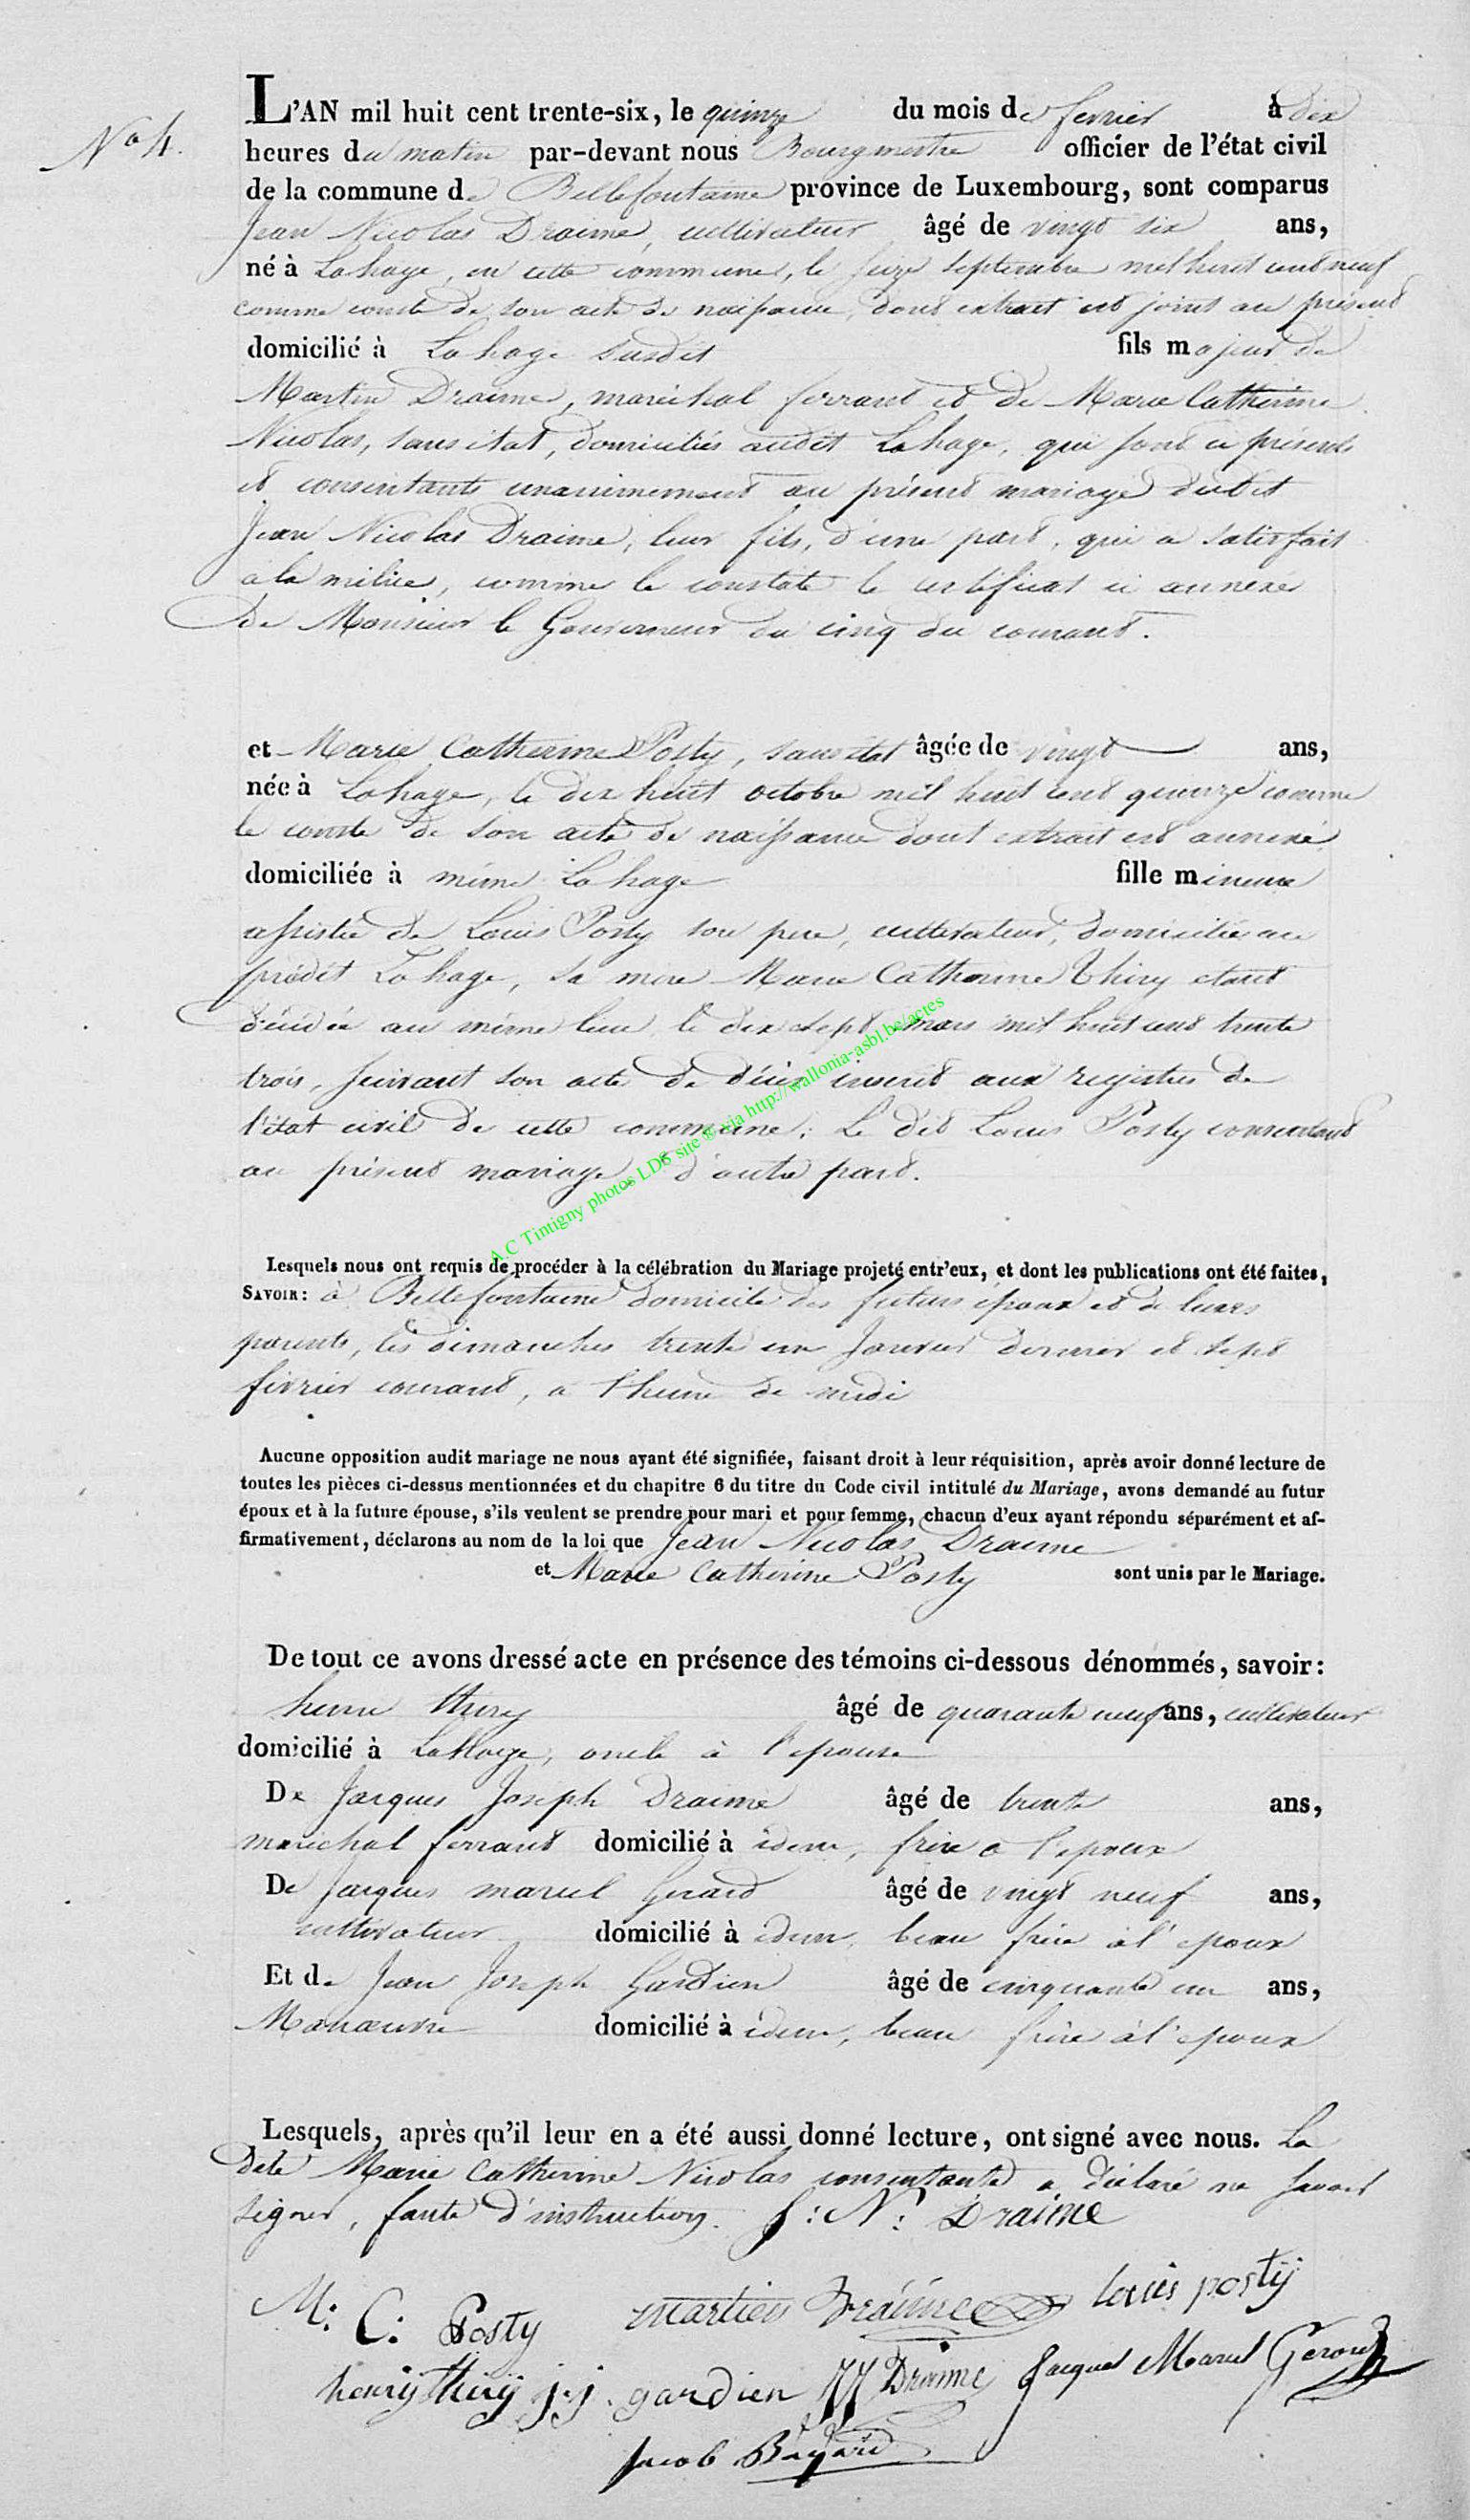 N° 4.
L'AN mil huit cent trente-six, le quinze du mois de fevrier à dix
heures du matin par-devant nous Bourgmestre officier de l'état civil
de la commune de Bellefontaine province de Luxembourg, sont comparus
Jean Nicolas Draime, cultivateur âgé de vingt six ans,
né à Lahage, en cette commune, le seize septembre mil huit cent neuf
comme conste de son acte de naissance, dont extrait est joint au présent
domicilié à Lahage susdit fils majeur de
Martin Draime, maréchal ferrant et de Marie Catherine
Nicolas, sans état, domiciliés audit Lahage, qui sont ci présents
et consentants unanimement au présent mariage dudit
Jean Nicolas Draime, leur fils, d'une part, qui a satisfait
à la milice, comme le constate le certificat ci annexé
de Monsieur le Gouverneur du cinq du courant.
et Marie Catherine Posty, sans état âgée de vingt ans,
née à Lahage, le dix huit octobre mil huit cent quinze comme
le conste de son acte de naissance dont extrait est annexé
domiciliée à même Lahage fille mineure
assistée de Louis Posty son pere, cultivateur, domicilié au
prédit Lahage, sa mere Marie Catherine Thiry etant
décédée au même lieu le dix sept mars mil huit cent trente
trois, suivant son acte de décès inscrit aux registres de
l'état civil de cette commune; Le dit Louis Posty consentant
au présent mariage d'autre part.
A.C Tintigny photos LDS site & via http://wallonia-asbl.be/actes
Lesquels nous ont requis de procéder à la célébration du Mariage projeté entr'eux, et dont les publications ont été faites,
SAVOIR: à Bellefontaine domicile des futurs époux et de leurs
parents, les dimanches trente un Janvier dernier et sept
février courant, à l'heure de midi
Aucune opposition audit mariage ne nous ayant été signifiée, faisant droit à leur réquisition, après avoir donné lecture de
toutes les pièces ci-dessus mentionnées et du chapitre 6 du titre du Code civil intitulé du Mariage, avons demandé au futur
époux et à la future épouse, s'ils veulent se prendre pour mari et pour femme, chacun d'eux ayant répondu séparément et af-
firmativement, déclarons au nom de la loi que Jean Nicolas Draime
et Marie Catherine Posty sont unis par le Mariage.
De tout ce avons dressé acte en présence des témoins ci-dessous dénommés, savoir:
henri thiry âgé de quarante neuf ans, cultivateur
domicilié à Lahage, oncle à l'epouse
De Jacques Joseph Draime âgé de trente ans,
maréchal ferrant domicilié à idem, frère à l'epoux
De Jacques marcel Gerard âgé de vingt neuf ans,
cultivateur domicilié à idem, beau frère à l'epoux
Et de Jean Joseph Gardien âgé de cinquante un ans,
Manœuvre domicilié à idem, beau frère à l'epoux
Lesquels, après qu'il leur en a été aussi donné lecture, ont signé avec nous. La
dite Marie Catherine Nicolas consentante a déclaré ne savoir
signer, faute d'instruction. J: N: Draime
M: C: Posty martien Draime louis postÿ
henrÿ thirÿ j.j. gardien JJ Draime Jacques Marcel Gerard
Jacob Bayard